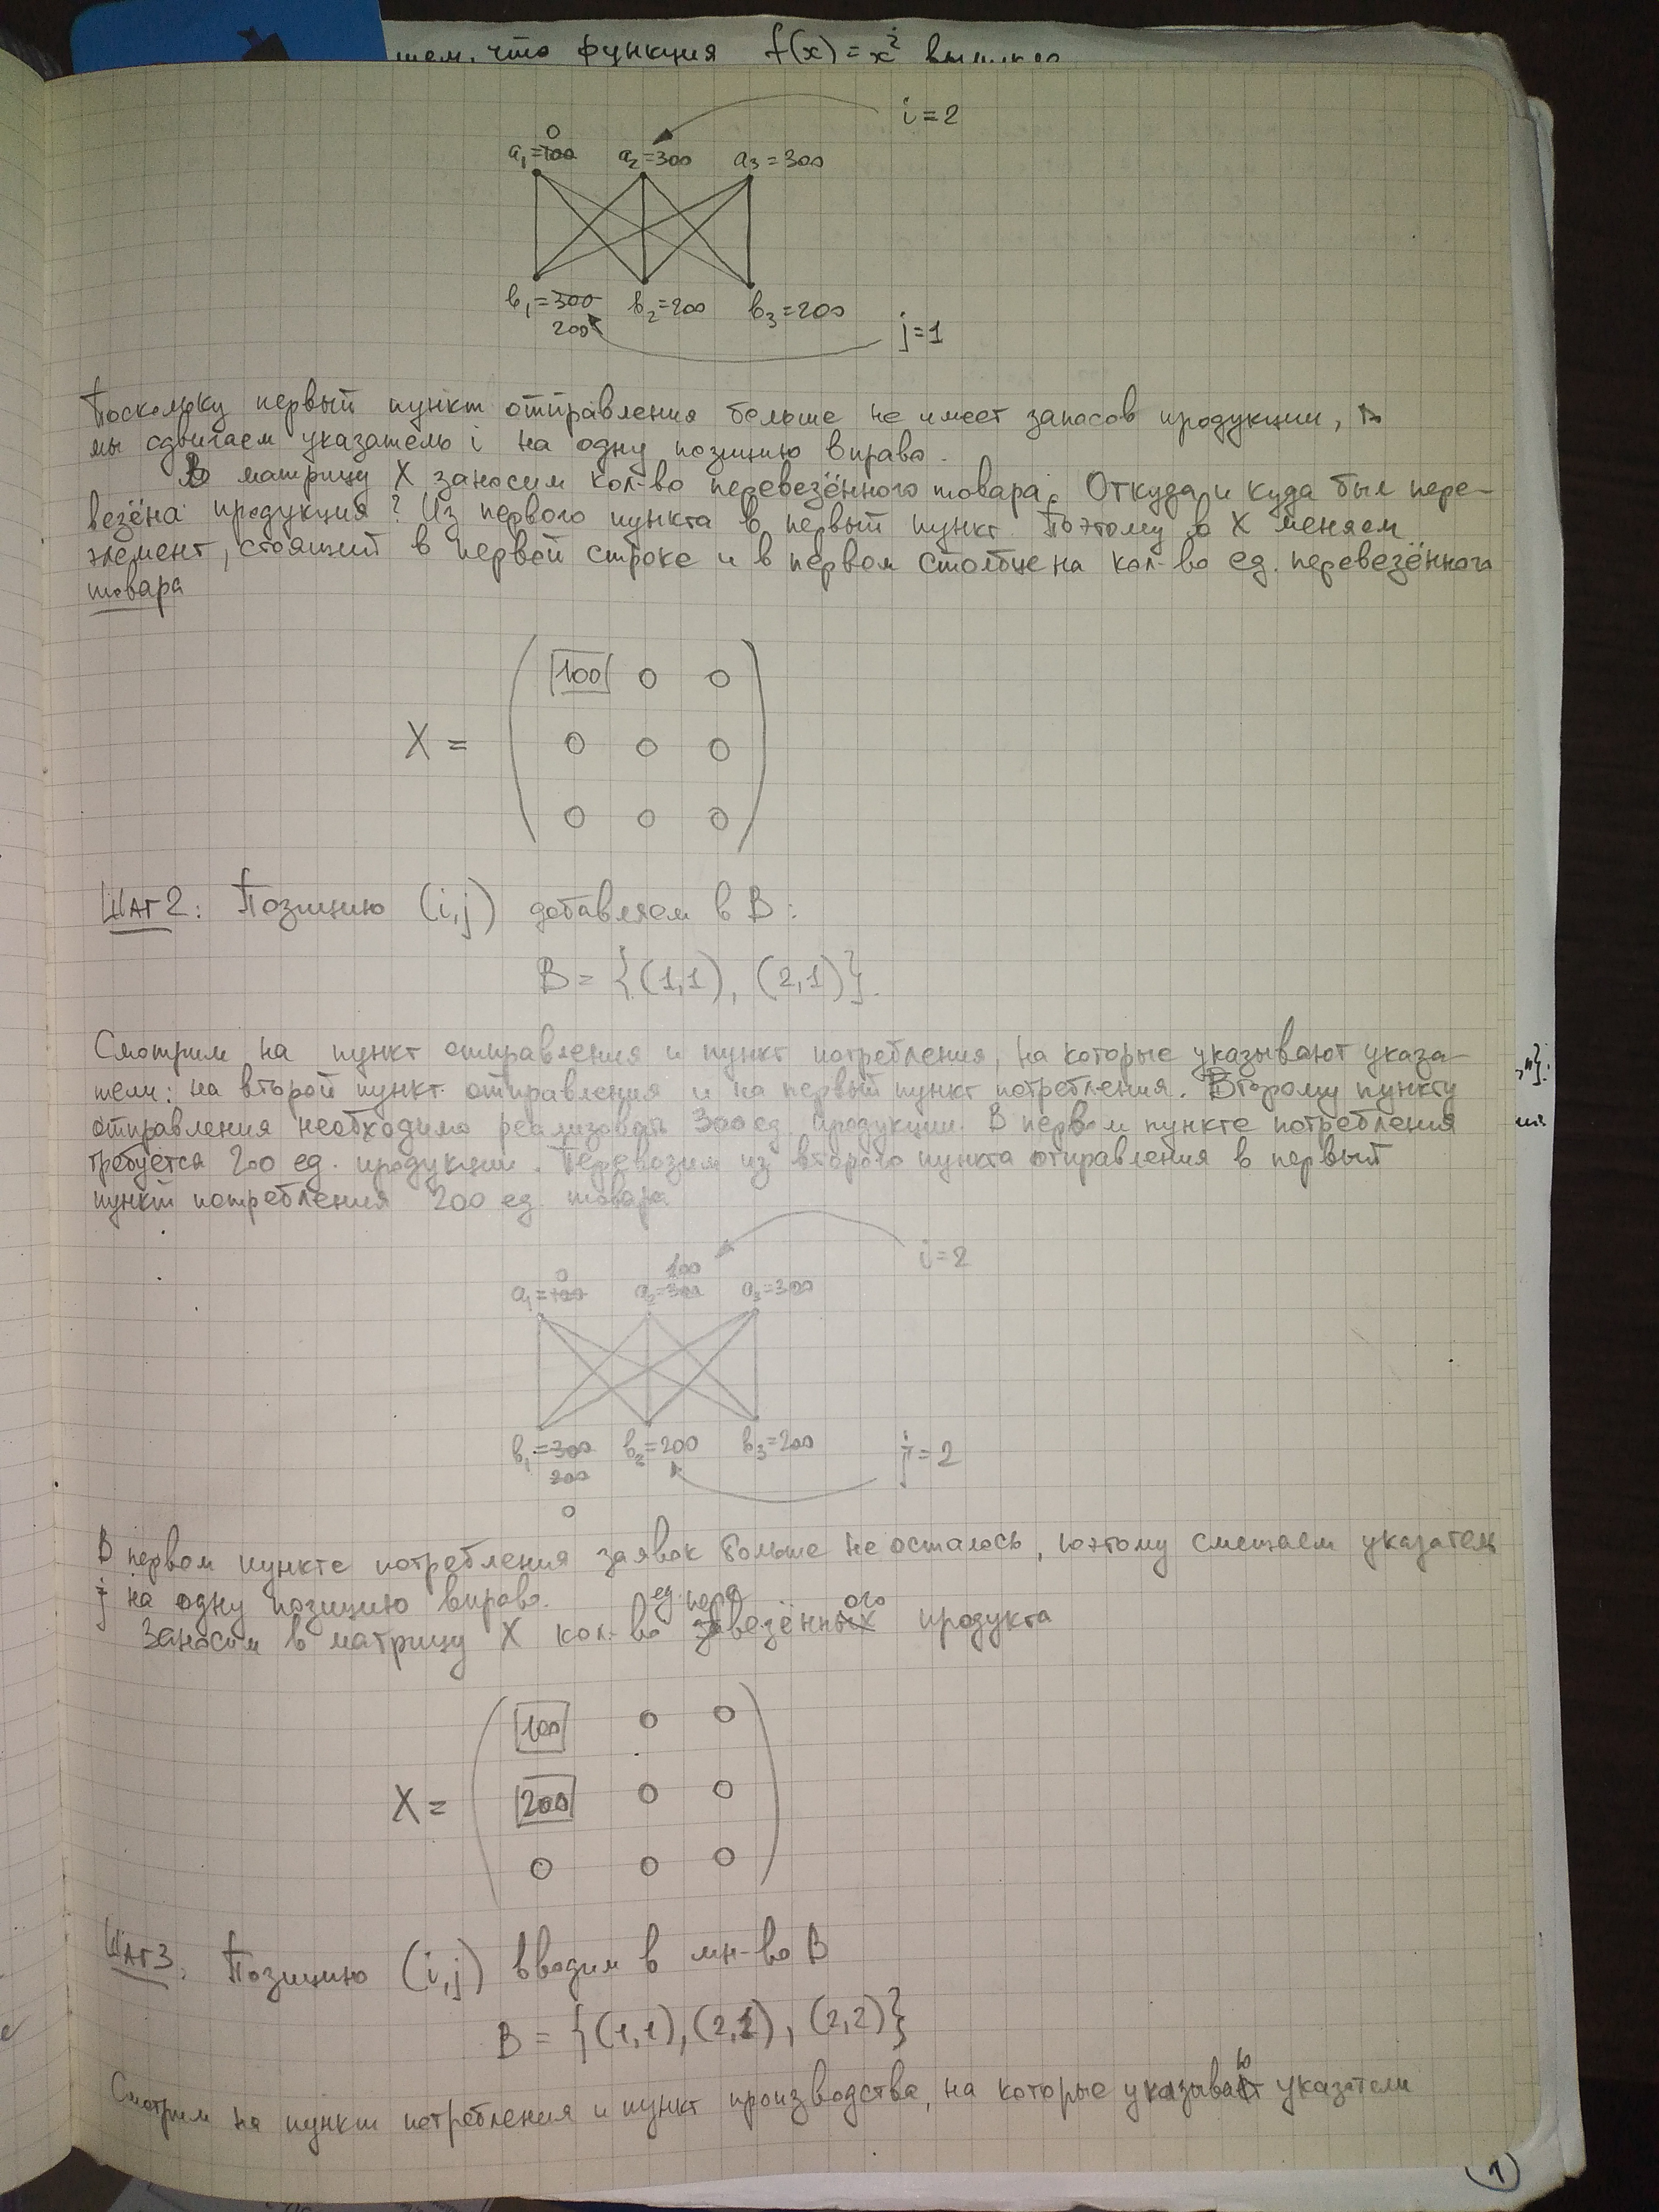 что функция f(x)=x²
i=2
0
a₁=100 a₂=300 a₃=300
b₁=300 b₂=200 b₃=200
200
j=1
Поскольку первый пункт отправления больше не имеет запасов продукции,
мы сдвигаем указатель i на одну позицию вправо.
В матрицу X заносим кол-во перевезённого товара. Откуда и куда был пере-
везёна продукция? Из первого пункта в первый пункт. Поэтому в X меняем
элемент, стоящий в первой строке и в первом столбце на кол-во ед. перевезённого
товара
100 0 0
X = 0 0 0
0 0 0
Шаг 2: Позицию (i,j) добавляем в B:
B = {(1,1), (2,1)}.
Смотрим на пункт отправления и пункт потребления, на которые указывают указа-
тели: на второй пункт отправления и на первый пункт потребления. Второму пункту
отправления необходимо реализовать 300 ед. продукции. В первом пункте потребления
требуется 200 ед. продукции. Перевозим из второго пункта отправления в первый
пункт потребления 200 ед. товара.
i=2
0 100
a₁=100 a₂=300 a₃=300
b₁=300 b₂=200 b₃=200
200
0
j=2
В первом пункте потребления заявок больше не осталось, поэтому смещаем указатель
j на одну позицию вправо.
ед. пере ого
Заносим в матрицу X кол-во завезённых продукта
100 0 0
X = 200 0 0
0 0 0
Шаг 3. Позицию (i,j) вводим в мн-во B
B = {(1,1), (2,1), (2,2)}
Смотрим на пункт потребления и пункт производства, на которые указывают указатели
1